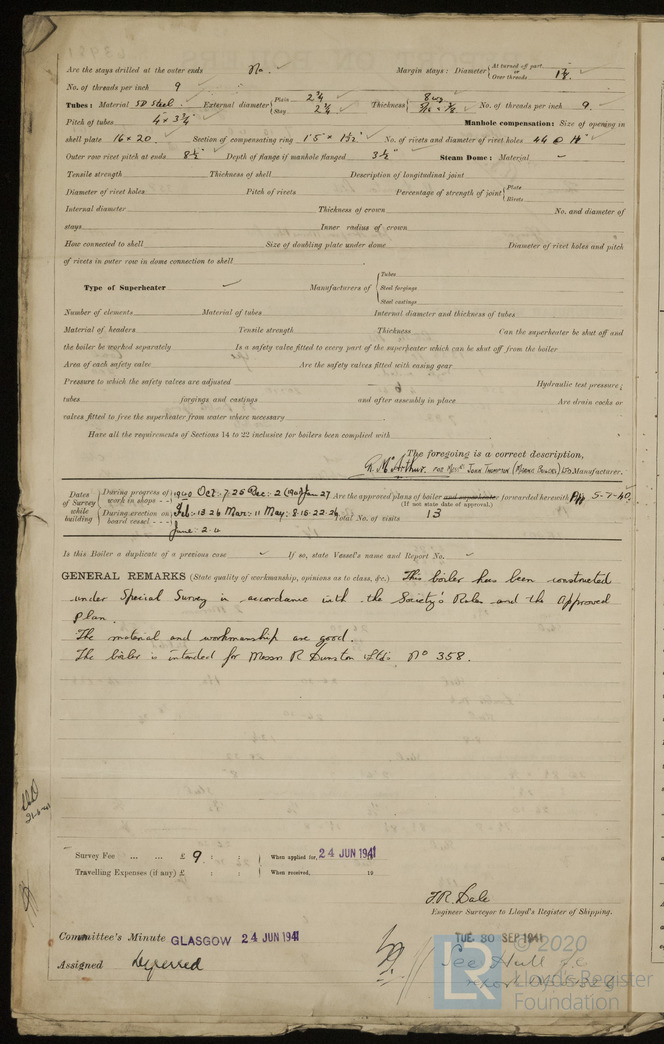 Are the stays drilled at the outer ends No. Margin stays: Diameter { At turned off part, or Over threads 1 7/8"
No. of threads per inch 9
Tubes: Material SD Steel External diameter { Plain 2 3/4 Stay 2 3/4 Thickness { 8 wg 5/16 & 3/8 No. of threads per inch 9.
Pitch of tubes 4 x 3 3/4" Manhole compensation: Size of opening in
shell plate 16 x 20 Section of compensating ring No. of rivets and diameter of rivet holes 44 @
Outer row rivet pitch at ends 8 1/2" Depth of flange if manhole flanged 3 1/2" Steam Dome: Material
Tensile strength Thickness of shell Description of longitudinal joint
Diameter of rivet holes Pitch of rivets Percentage of strength of joint { Plate Rivets
Internal diameter Thickness of crown No. and diameter of
stays Inner radius of crown
How connected to shell Size of doubling plate under dome Diameter of rivet holes and pitch
of rivets in outer row in dome connection to shell
Type of Superheater Manufacturers of { Tubes Steel forgings Steel castings
Number of elements Material of tubes Internal diameter and thickness of tubes
Material of headers Tensile strength Thickness Can the superheater be shut off and
the boiler be worked separately Is a safety valve fitted to every part of the superheater which can be shut off from the boiler
Area of each safety valve Are the safety valves fitted with easing gear
Pressure to which the safety valves are adjusted Hydraulic test pressure:
tubes forgings and castings and after assembly in place Are drain cocks or
valves fitted to free the superheater from water where necessary
Have all the requirements of Sections 14 to 22 inclusive for boilers been complied with
The foregoing is a correct description,
G. McArthur. FOR MESSRS JOHN THOMPSON (MARINE BOILERS) LTD Manufacturer.
Dates of Survey while building { During progress of work in shops - - 1940 Oct: 7. 25 Dec: 2 (1941) Jan 27 Are the approved plans of boiler and superheater forwarded herewith 5-7-40.
(If not state date of approval.)
During erection on board vessel - - - Feb: 13. 26 Mar: 11 May: 8. 15. 22. 26 Total No. of visits 13
June: 2. 4
Is this Boiler a duplicate of a previous case If so, state Vessel's name and Report No.
GENERAL REMARKS (State quality of workmanship, opinions as to class, &c.) This boiler has been constructed
under Special Survey in accordance with the Society's Rules and the Approved
Plan.
The material and workmanship are good.
The boiler is intended for Messrs R Dunston Ltd's No 358.
Survey Fee ... ... £ 9 : : When applied for, 24 JUN 1941
Travelling Expenses (if any) £ : : When received, 19
J.R. Dale
Engineer Surveyor to Lloyd's Register of Shipping.
Committee's Minute GLASGOW 24 JUN 1941 TUE. 30 SEP 1941
Assigned Deferred See Hull J.C.
© 2020
Lloyd's Register
Foundation
LR